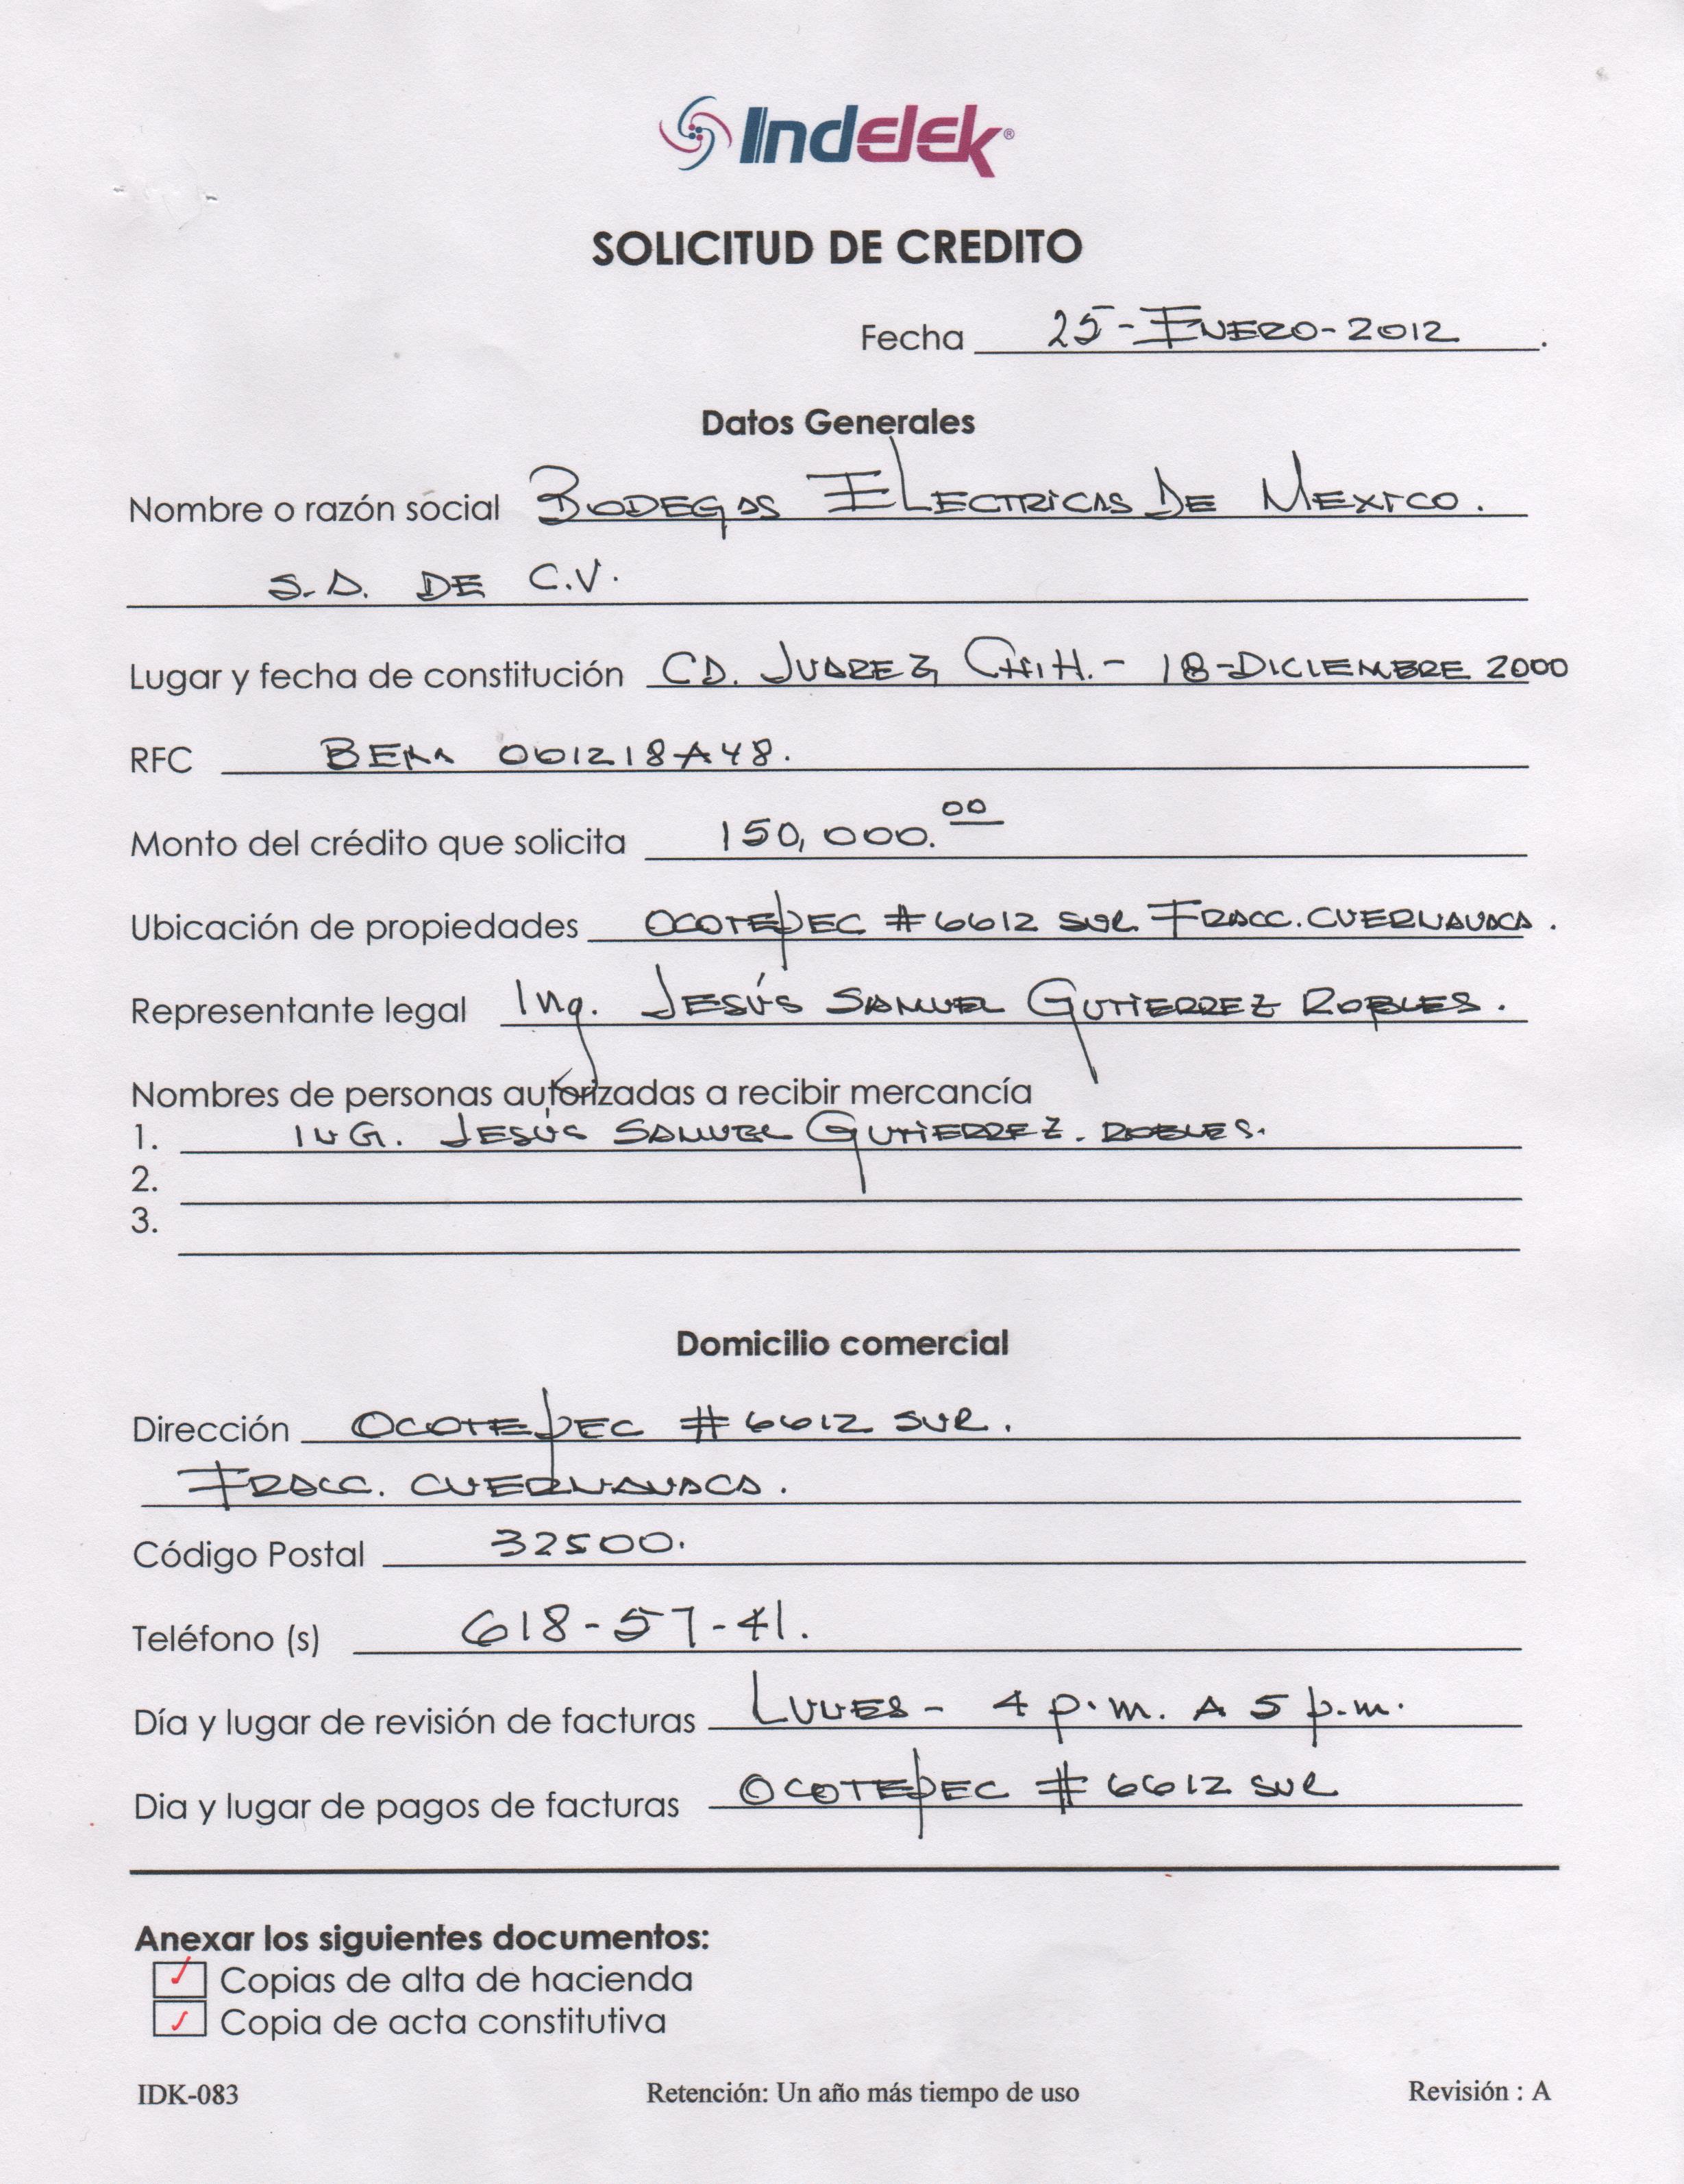 Indelek®
SOLICITUD DE CREDITO
Fecha 25-ENERO-2012.
Datos Generales
Nombre o razón social BODEGAS ELECTRICAS DE MEXICO.
S.A. DE C.V.
Lugar y fecha de constitución CD. JUAREZ CHIH.- 18-DICIEMBRE 2000
RFC BEM 001218A48.
Monto del crédito que solicita 150,000.00
Ubicación de propiedades OCOTEPEC #6612 SUR FRACC. CUERNAVACA.
Representante legal Ing. JESÚS SAMUEL GUTIERREZ ROBLES.
Nombres de personas autorizadas a recibir mercancía
1. ING. JESÚS SAMUEL GUTIERREZ. ROBLES.
2.
3.
Domicilio comercial
Dirección OCOTEPEC #6612 SUR.
FRACC. CUERNAVACA.
Código Postal 32500.
Teléfono (s) 618-57-41.
Día y lugar de revisión de facturas LUNES- 4 p.m. A 5 p.m.
Dia y lugar de pagos de facturas OCOTEPEC #6612 SUR
Anexar los siguientes documentos:
✓ Copias de alta de hacienda
✓ Copia de acta constitutiva
IDK-083 Retención: Un año más tiempo de uso Revisión : A